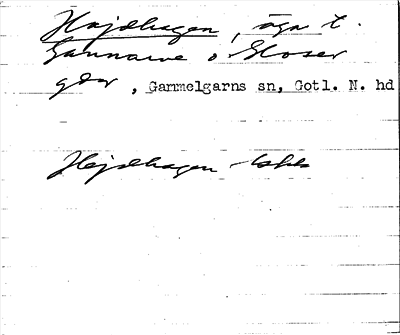 Hajdhagen, äga t.
Gannarve o Gloser
gdar, Gammelgarns sn, Gotl. N. hd
Hejdhagen